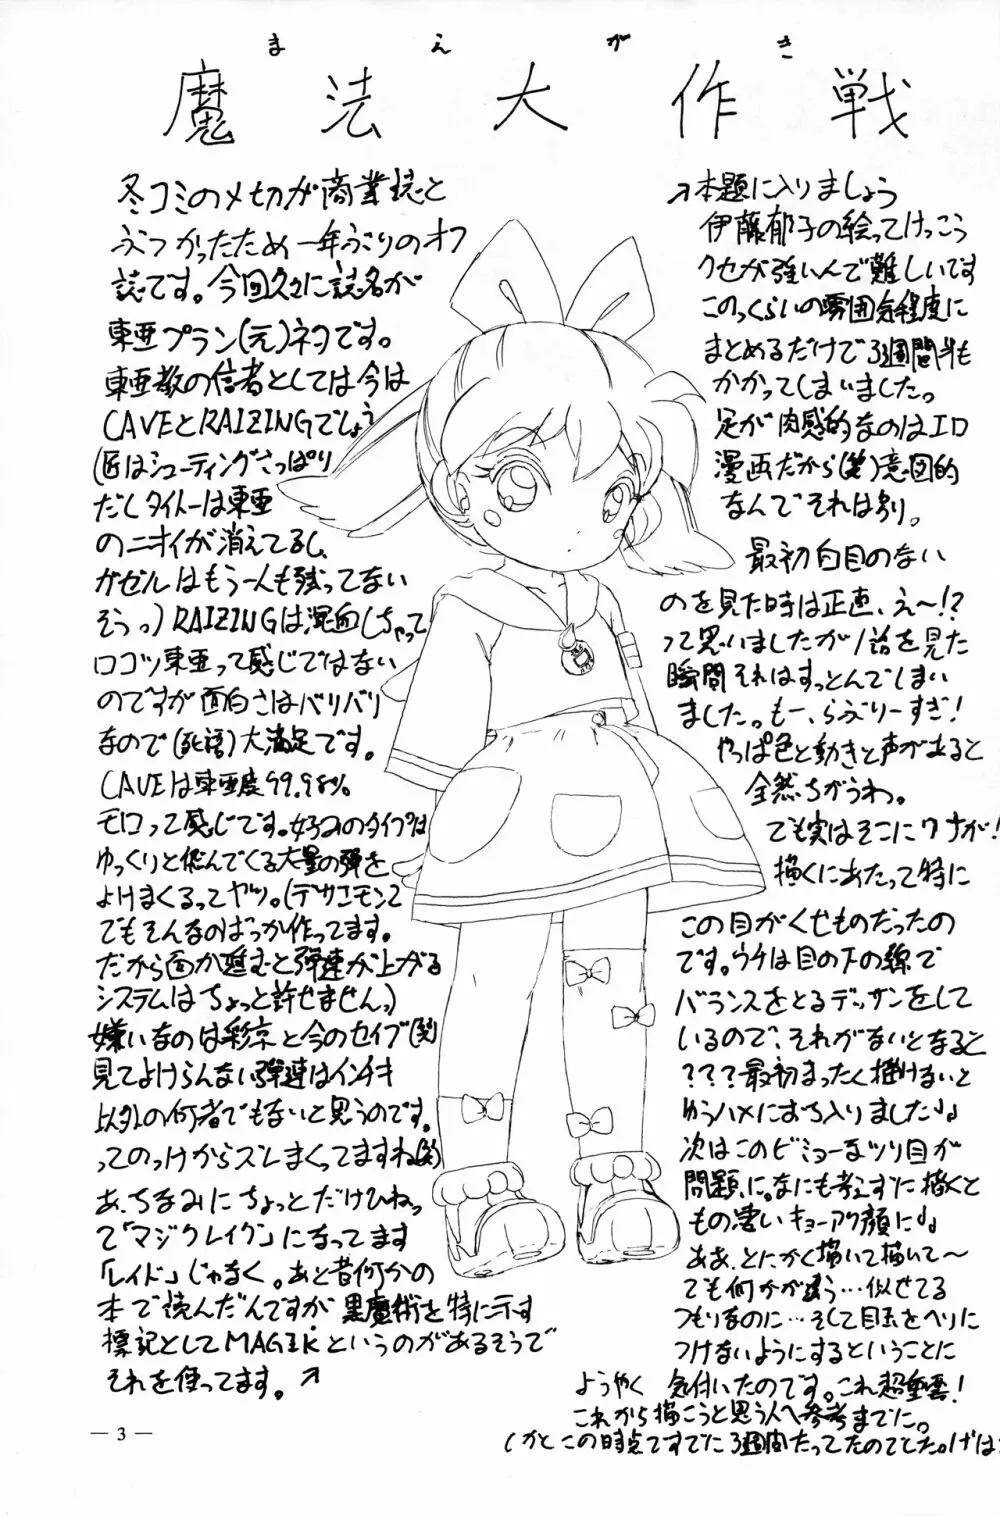 まえがき
魔法大作戦
冬コミの〆切が商業誌と
ぶつかったため一年ぶりのオフ
誌です。今回久々に誌名が
東亜プラン(元)ネタです。
東亜教の信者としては今は
CAVEとRAIZINGでしょう
(匠はシューティングさっぱり
だしタイトーは東亜
のニオイが消えてるし、
ガゼルはもう一人も残ってない
そうっ)RAIZINGは混血しちゃって
ロコツ東亜って感じではない
のですが面白さはバリバリ
なので(死語)大満足です。
CAVEは東亜度99.98%
モロって感じです。好みのタイプは
ゆっくりと飛んでくる大量の弾を
よけまくるってヤツ。(デザエモン
でもそんなのばっか作ってます。
だから面が進むと弾速が上がる
システムはちょっと許せませんっ)
嫌いなのは彩京と今のセイブ
見てよけらんない弾速はインチキ
以外の何者でもないと思うのです。
ってのっけからズレまくってますね(笑)
あ、ちなみにちょっとだけひねっ
て「マジクレイグ」になってます
「レイド」じゃなく。あと昔何かの
本で読んだんですが黒魔術を特に示す
標記としてMAGIKというのがあるそうで
それを使ってます。↗
↗本題に入りましょう
伊藤郁子の絵ってけっこう
クセが強いんで難しいです
このっくらいの雰囲気程度に
まとめるだけで3週間半も
かかってしまいました。
足が肉感的なのはエロ
漫画だから(笑)意図的
なんでそれは別。
最初白目のない
のを見た時は正直、え〜!?
って思いましたが1話を見た
瞬間それはすっとんでしまい
ました。もー、らぶりーすぎ!
やっぱ色と動きと声があると
全然ちがうわ。
でも実はそこにワナが!
描くにあたって特に
この目がくせものだったの
です。ウチは目の下の線で
バランスをとるデッサンをして
いるので、それがないとなると
???最初まったく描けないと
ゆうハメにおち入りました♩♩
次はこのビミョーなツリ目が
問題に。なにも考えずに描くと
もの凄いキョーアク顔に♩♩
ああ、とにかく描いて描いて〜
でも何かが違う…似せてる
つもりなのに…そして目玉をヘリに
つけないようにするということに
ようやく気付いたのです。これ超重要!
これから描こうと思う人へ参考までに。
(かとこの時点ですでに3週間たってたのでした。げは
— 3 —